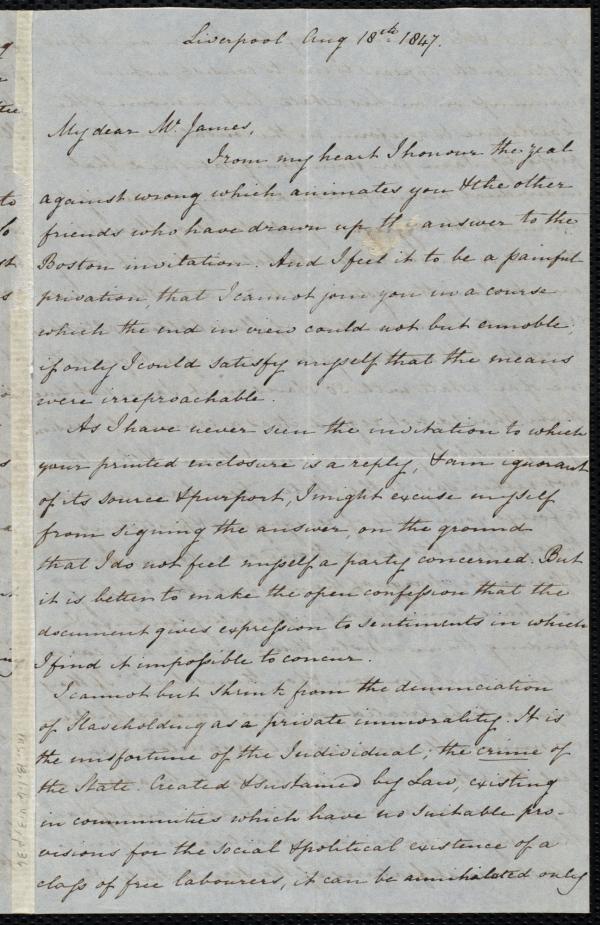 Liverpool Aug 18th 1847.
My dear Mr James,
From my heart I honour the zeal
against wrong which animates you & the other
friends who have drawn up the answer to the
Boston invitation. And I feel it to be a painful
privation, that I cannot join you in a course
which the end in view could not but ennoble,
if only I could satisfy myself that the means
were irreproachable.
As I have never seen the invitation to which
your printed enclosure is a reply, & am ignorant
of its source & purport, I might excuse myself
from signing the answer, on the ground
that I do not feel myself a party concerned. But
it is better to make the open confession that the
document gives expression to sentiments in which
I find it impossible to concur.
I cannot but shrink from the denunciation
of Slaveholding as a private immorality. It is
the misfortune of the Individual; the crime of
the State. Created & sustained by Law, existing
in communities which have no suitable pro-
visions for the social & political existence of a
class of free labourers, it can be annihilated only